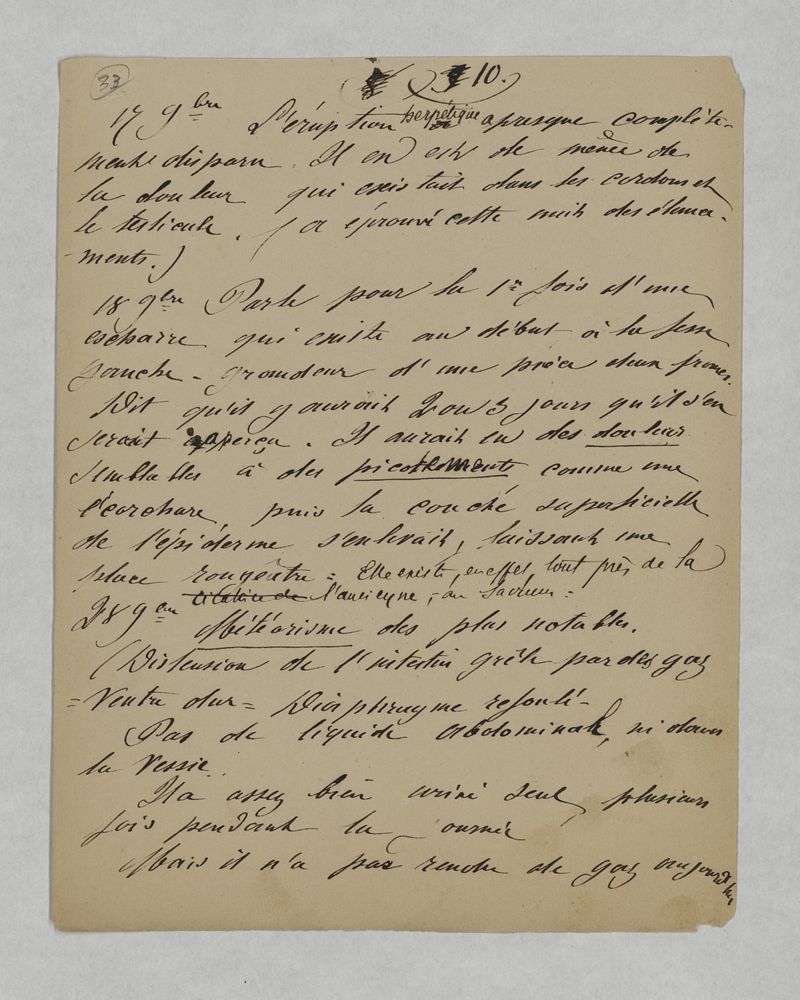 33
10.
17 9bre L'éruption herpétique a presque complète-
ment disparu. Il en est de même de
la douleur qui existait dans les cordons et
le testicule. (a éprouvé cette nuit des élance-
ments.)
18 9bre Parle pour la 1re fois d'une
escharre qui existe au début à la fesse
gauche - grandeur d'une pièce deux francs.
Dit qu'il y aurait 2 ou 3 jours qu'il s'en
serait aperçu. Il aurait eu des douleurs
semblables à des picotements comme une
écorchure, puis la couche superficielle
de l'épiderme s'enlevait, laissant une
place rougeâtre = Elle existe, en effet, tout près de la
l'ancienne, au sacrum =
28 9bre Météorisme des plus notables.
(Distension de l'intestin grêle par des gaz
= Ventre dur = Diaphragme refoulé -
Pas de liquide abdominal, ni dans
la vessie.
Il a assez bien uriné seul, plusieurs
fois pendant la journée
Mais il n'a pas rendu de gaz aujourd'hui